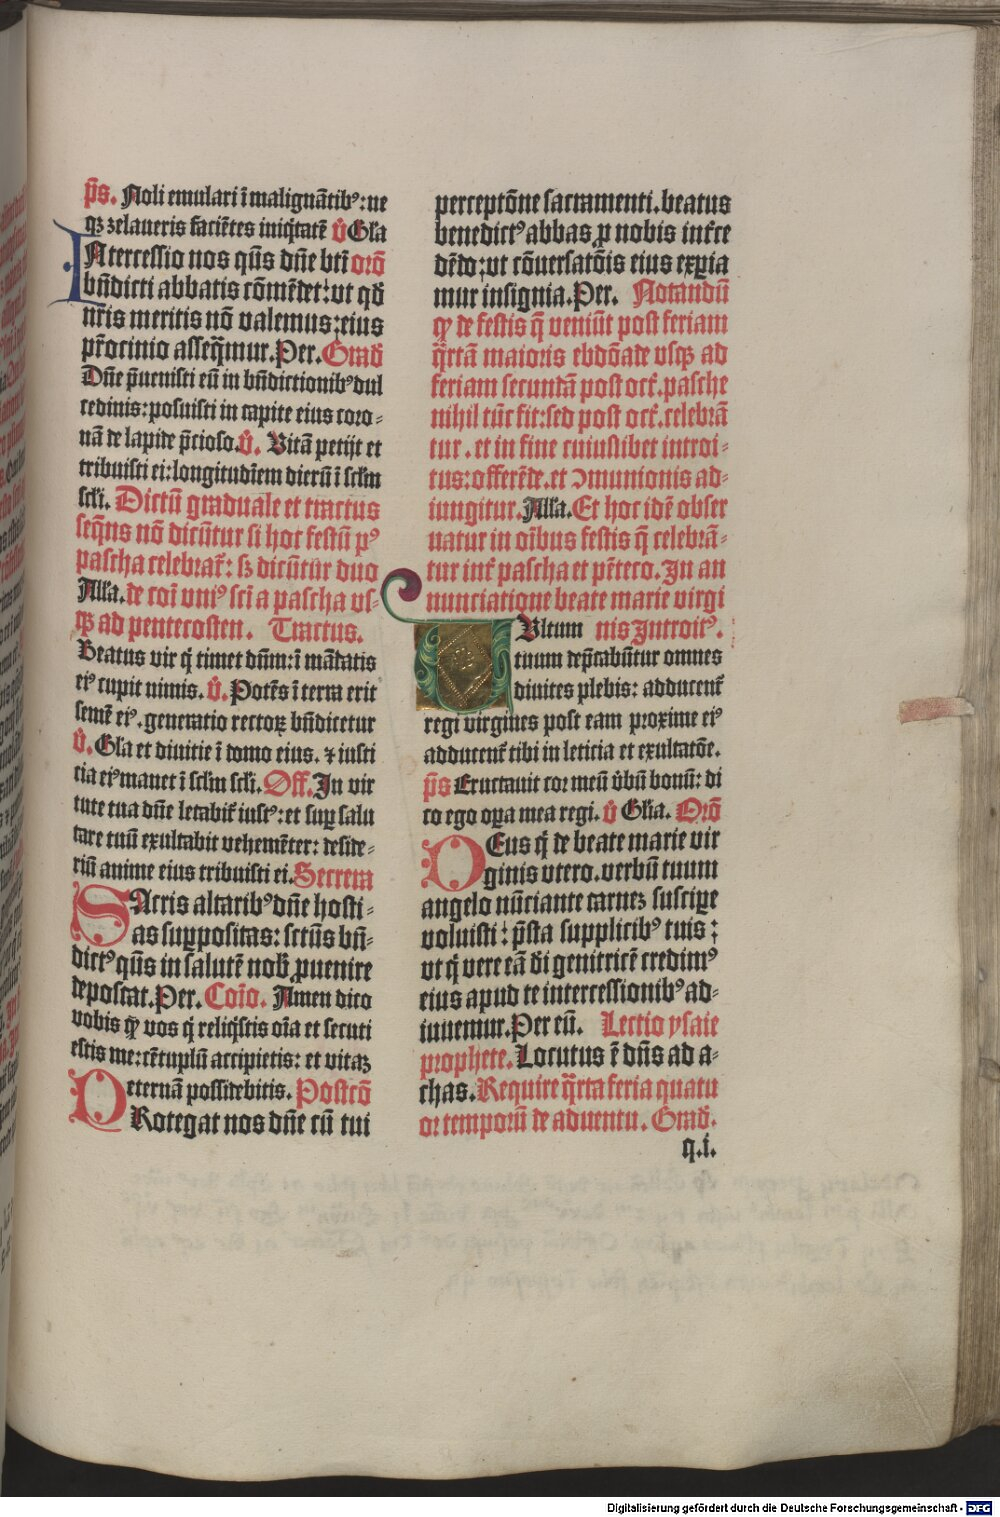 p̄s. Noli emulari ī malignātibꝰ: ne
qꝫ zelaueris faciētes iniq̇tatē v̓ Gl̓a
INtercessio nos q̄s dn̄e bt̄i orō
bn̄dicti abbatis cōmēdet: vt qd̓
nr̄is meritis nō valemus: eius
pr̄ocinio asseq̄mur. Per. Grad̓
Dn̄e p̄uenisti eū in bn̄dictionibꝰ dul
cedinis: posuisti in capite eius coro⸗
nā de lapide p̄cioso. v̓. Vitā petijt et
tribuisti ei: longitudīem dierū ī sclm̄
scl̓i. Dictū graduale et tractus
seq̄ns nō dicūtur si hoc festū pꝰ
pascha celebrat̄: sꝫ dicūtur duo
All̓a. de cōi vniꝰ sci̓ a pascha vs⸗
qꝫ ad pentecosten. Tractus.
Beatus vir q̇ timet dn̄m: ī mādatis
eiꝰ cupit nimis. v̓. Potēs ī terra erit
semē eiꝰ. generatio rectoꝝ bn̄dicetur
v̓. Gl̓a et diuitie ī domo eius. ⁊ iusti
cia eiꝰ manet ī sclm̄ scl̓i. Off. In vir
tute tua dn̄e letabit̄ iustꝰ: et suꝑ salu
tare tuū exultabit vehemēter: deside⸗
riū anime eius tribuisti ei. Secreta
SAcris altaribꝰ dn̄e hosti⸗
as suꝑpositas: sctūs bn̄⸗
dictꝰ q̄s in salutē nob̓ ꝓuenire
deposcat. Per. Coīo. Amen dico
vobis qꝫ vos q̇ reliq̇stis oīa et secuti
estis me: cētuplū accipietis: et vitaꝫ
eternā possidebitis. Postcō
PRotegat nos dn̄e cū tui
perceptōne sacramenti. beatus
benedictꝰ abbas ꝓ nobis int̄ce
dēdo: vt cōuersatōis eius exꝑia
mur insignia. Per. Notandū
qꝫ de festis q̄ veniūt post feriam
q̄rtā maioris ebdōade vsqꝫ ad
feriam secundā post oct̄. pasche
nihil tūc fit: sed post oct̄. celebrā
tur. et in fine cuiuslibet introi⸗
tus: offerēde. et ꝯmunionis ad⸗
iungitur. All̓a. Et hoc idē obser
uatur in oībus festis q̄ celebrā⸗
tur int̄ pascha et pēteco. In an
nunciatione beate marie virgi
VUltum nis Introitꝰ.
tuum dep̄cabūtur omnes
diuites plebis: adducent̄
regi virgines post eam proxime eiꝰ
adducent̄ tibi in leticia et exultatōe.
p̄s Eructauit cor meū v̓bū bonū: di
co ego oꝑa mea regi. v̓ Gl̓ia. Orō
DEus q̇ de beate marie vir
ginis vtero. verbū tuum
angelo nūciante carneꝫ suscipe
voluisti: p̄sta supplicibꝰ tuis:
vt q̇ vere eā di̓ genitricē credimꝰ
eius apud te intercessionibꝰ ad⸗
iuuemur. Per eū. Lectio ysaie
prophete. Locutus ē dn̄s ad a⸗
chas. Require q̄rta feria quatu
or temporū de aduentu. Grad̓.
q.i.
Digitalisierung gefördert durch die Deutsche Forschungsgemeinschaft - DFG